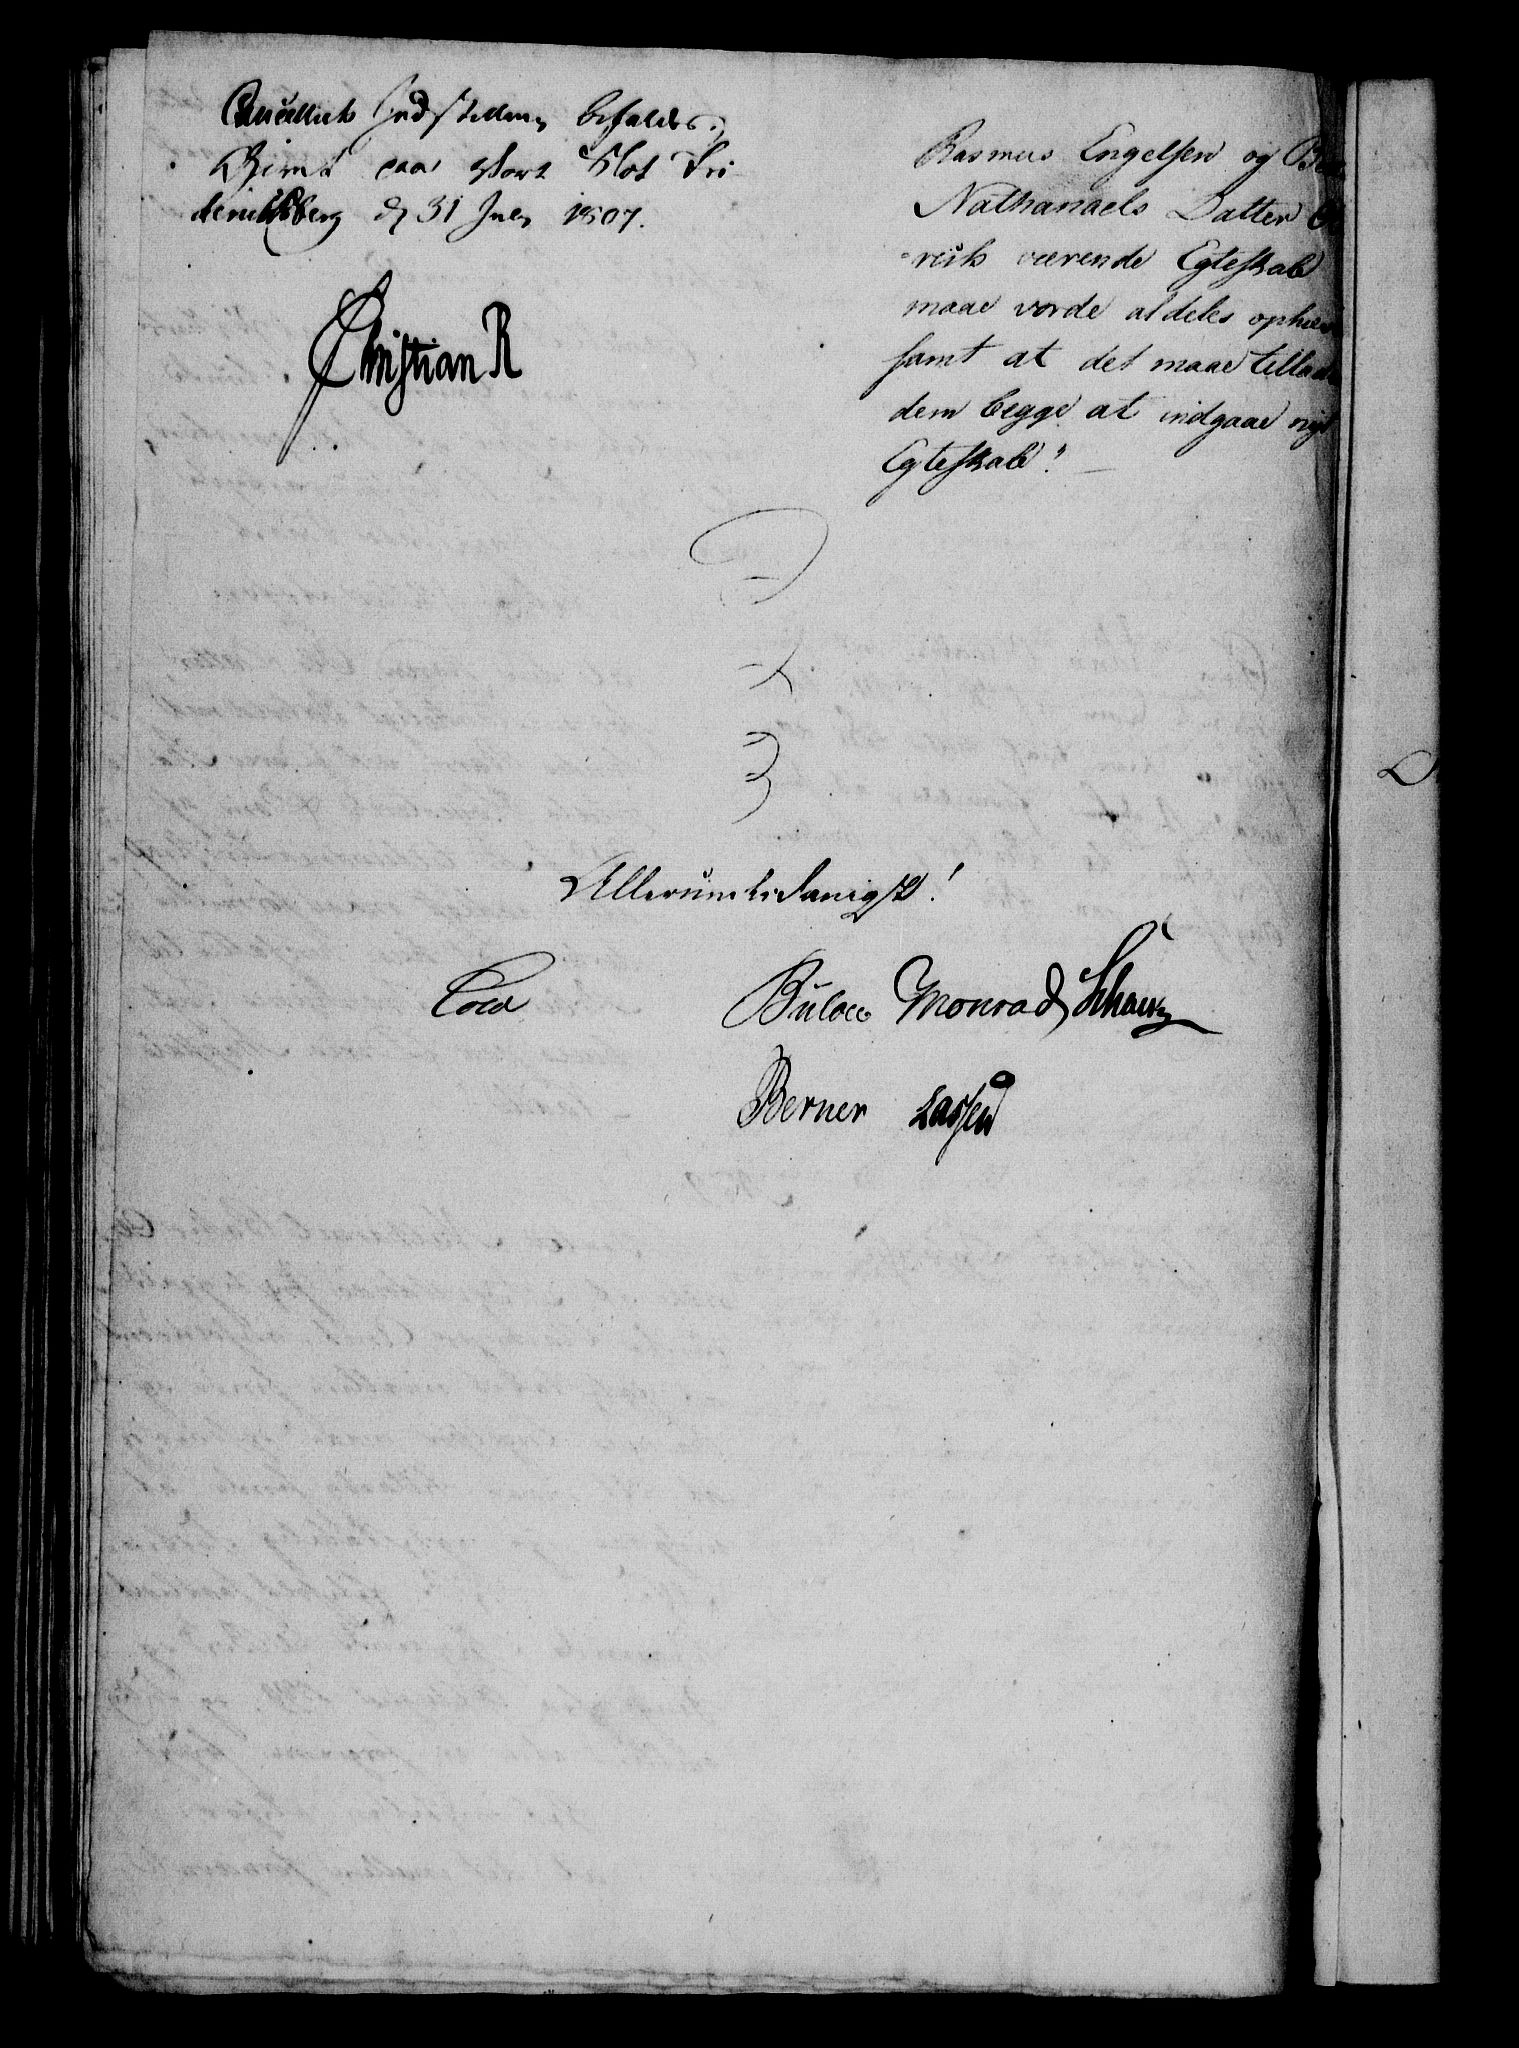 Cancelliets Indstilling befales.
Givet paa Vort Slot Fri
derichsberg d 31 July 1807.
Christian R
Rasmus Engelsen og
Nathanaels Datter
reiis værende Egteskab
maae vorde aldeles ophæ
samt at det maae tillad
dem begge at indgaae nyt
Egteskab! —
Allerunderdanigst!
Bülow Monrad
Berner Lassen